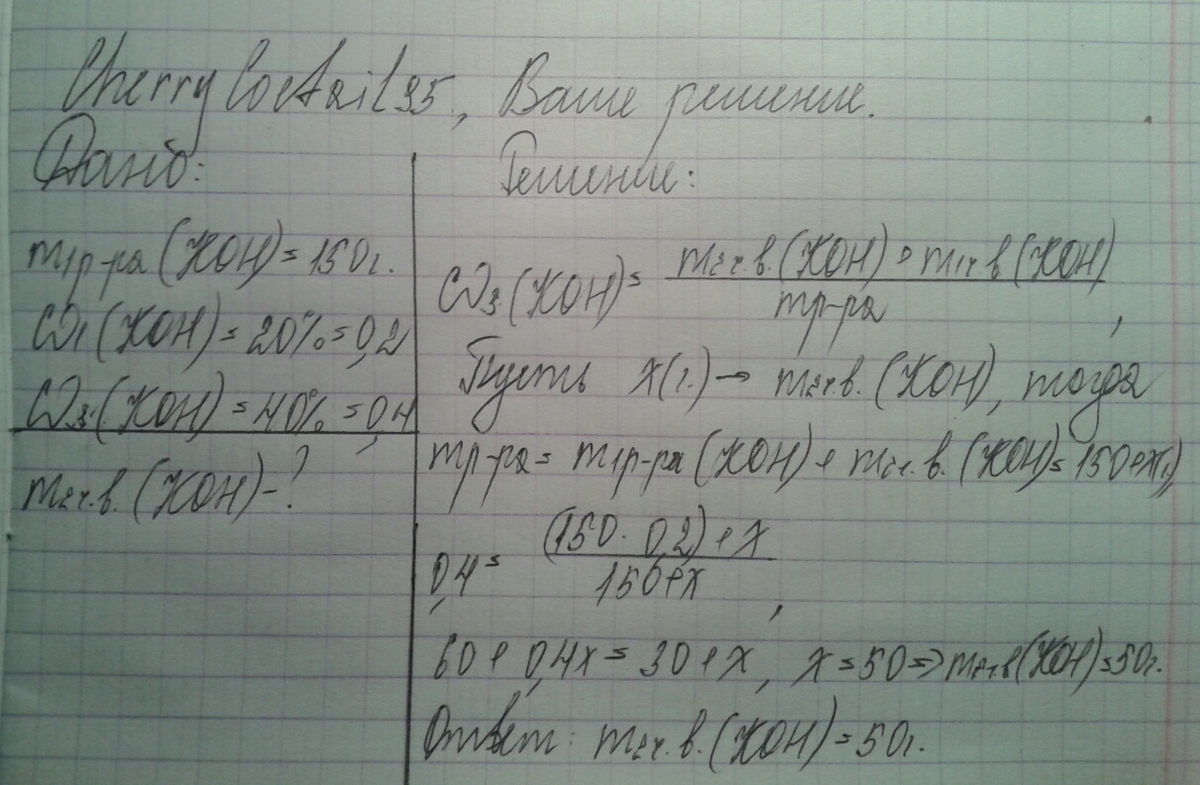 CherryCoctail95, Ваше решение.
Дано:
m1р-ра (KOH) = 150г.
ω1 (KOH) = 20% = 0,2
ω3 (KOH) = 40% = 0,4
m2ч.в. (KOH) - ?
Решение:
ω3 (KOH) = m2ч.в. (KOH) + m1ч.в (KOH)
mр-ра ,
Пусть x(г.) → m2ч.в. (KOH), тогда
mр-ра = m1р-ра (KOH) + m2ч.в. (KOH) = 150+x(г.)
0,4 = (150 · 0,2) + x
150+x ,
60 + 0,4x = 30 + x, x = 50 => m2ч.в (KOH) = 50г.
Ответ: m2ч.в. (KOH) = 50г.